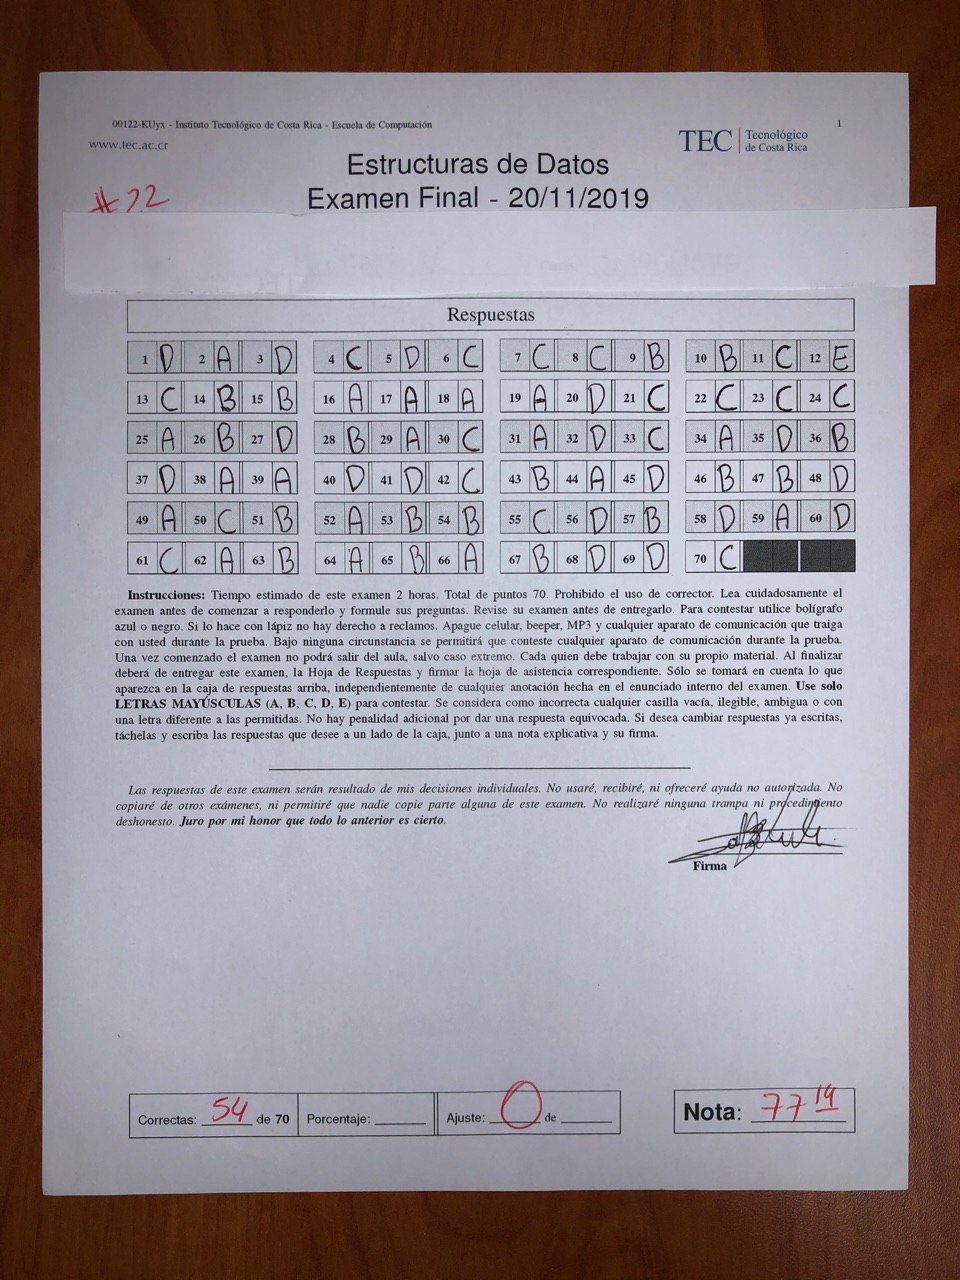 00122-KUyx - Instituto Tecnológico de Costa Rica - Escuela de Computación 1
www.tec.ac.cr
TEC Tecnológico de Costa Rica
Estructuras de Datos
Examen Final - 20/11/2019
#22
Respuestas
1 D 2 A 3 D 4 C 5 D 6 C 7 C 8 C 9 B 10 B 11 C 12 E
13 C 14 B 15 B 16 A 17 A 18 A 19 A 20 D 21 C 22 C 23 C 24 C
25 A 26 B 27 D 28 B 29 A 30 C 31 A 32 D 33 C 34 A 35 D 36 B
37 D 38 A 39 A 40 D 41 D 42 C 43 B 44 A 45 D 46 B 47 B 48 D
49 A 50 C 51 B 52 A 53 B 54 B 55 C 56 D 57 B 58 D 59 A 60 D
61 C 62 A 63 B 64 A 65 B 66 A 67 B 68 D 69 D 70 C
Instrucciones: Tiempo estimado de este examen 2 horas. Total de puntos 70. Prohibido el uso de corrector. Lea cuidadosamente el
examen antes de comenzar a responderlo y formule sus preguntas. Revise su examen antes de entregarlo. Para contestar utilice bolígrafo
azul o negro. Si lo hace con lápiz no hay derecho a reclamos. Apague celular, beeper, MP3 y cualquier aparato de comunicación que traiga
con usted durante la prueba. Bajo ninguna circunstancia se permitirá que conteste cualquier aparato de comunicación durante la prueba.
Una vez comenzado el examen no podrá salir del aula, salvo caso extremo. Cada quien debe trabajar con su propio material. Al finalizar
deberá de entregar este examen, la Hoja de Respuestas y firmar la hoja de asistencia correspondiente. Sólo se tomará en cuenta lo que
aparezca en la caja de respuestas arriba, independientemente de cualquier anotación hecha en el enunciado interno del examen. Use solo
LETRAS MAYÚSCULAS (A, B, C, D, E) para contestar. Se considera como incorrecta cualquier casilla vacía, ilegible, ambigua o con
una letra diferente a las permitidas. No hay penalidad adicional por dar una respuesta equivocada. Si desea cambiar respuestas ya escritas,
táchelas y escriba las respuestas que desee a un lado de la caja, junto a una nota explicativa y su firma.
Las respuestas de este examen serán resultado de mis decisiones individuales. No usaré, recibiré, ni ofreceré ayuda no autorizada. No
copiaré de otros exámenes, ni permitiré que nadie copie parte alguna de este examen. No realizaré ninguna trampa ni procedimiento
deshonesto. Juro por mi honor que todo lo anterior es cierto.
Firma
Correctas: 54 de 70 Porcentaje: Ajuste: 0 de Nota: 77 14